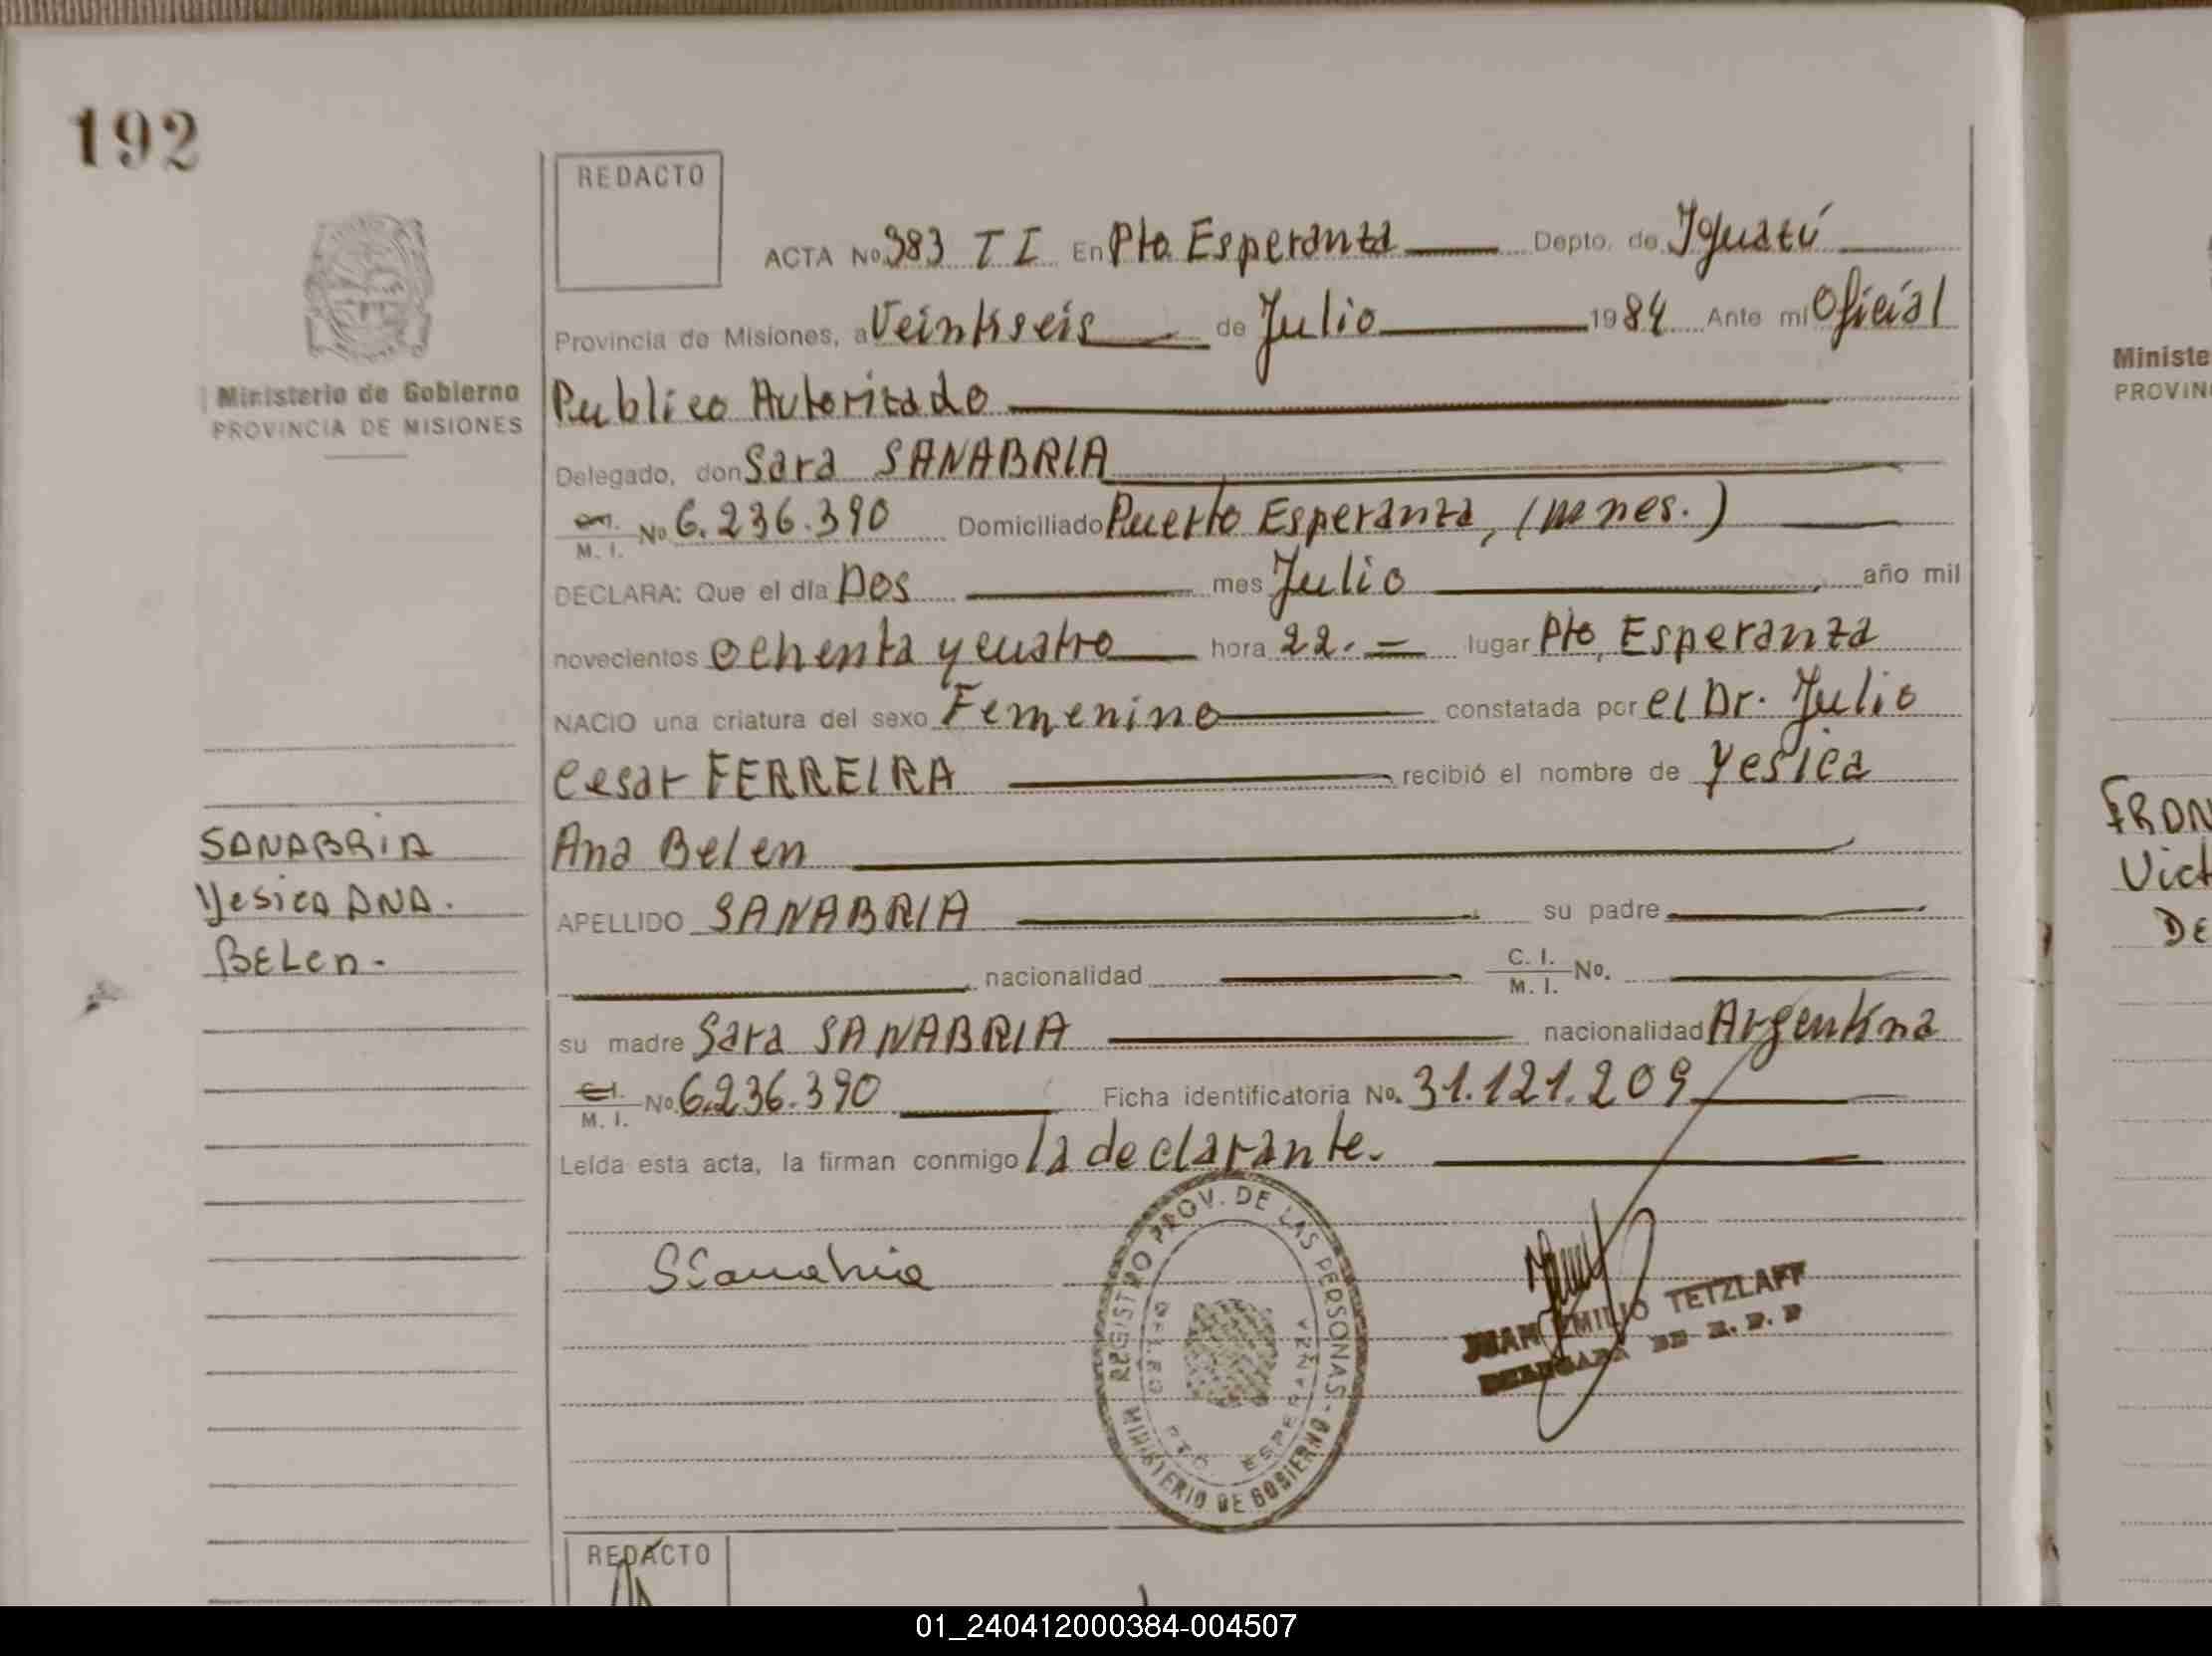 192
REDACTO
ACTA No 383 T I En Pto Esperanza Depto. de Iguazú
Provincia de Misiones, a Veintiseis de Julio 1984 Ante mi Oficial
Ministerio de Gobierno
PROVINCIA DE MISIONES
Publico Autorizado
Delegado, don Sara SANABRIA
M. I. No 6.236.390 Domiciliado Puerto Esperanza, (mnes.)
DECLARA: Que el día Dos mes Julio año mil
novecientos ochenta y cuatro hora 22.= lugar Pto, Esperanza
NACIO una criatura del sexo Femenino constatada por el Dr. Julio
Cesar FERREIRA recibió el nombre de Yesica
Ana Belen
SANABRIA
Yesica ANA.
BELen-
APELLIDO SANABRIA su padre
nacionalidad C. I. M. I. No.
su madre Sara SANABRIA nacionalidad Argentina
C.I. M. I. No. 6.236.390 Ficha identificatoria No. 31.121.209
Leída esta acta, la firman conmigo la declarante.
SSanabria
REGISTRO PROV. DE LAS PERSONAS - MINISTERIO DE GOBIERNO
PTO. ESPERANZA
JUAN EMILIO TETZLAFF
REDACTO
Ministe
PROVIN
FRON
Vict
DE
01_240412000384-004507